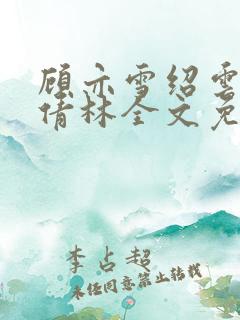 顾亦雪绍雲
倩林全文免
李占超
未经同意禁止转载